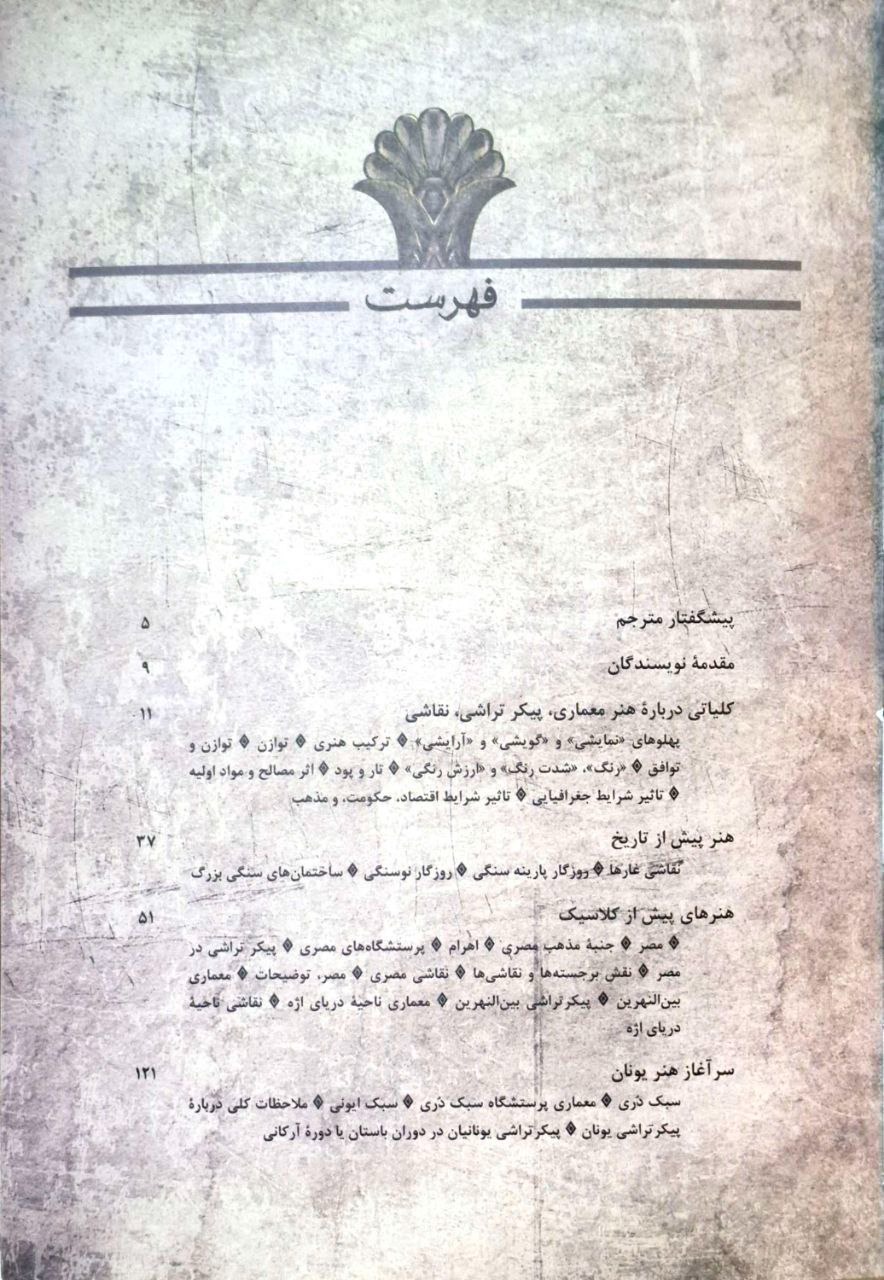 فهرست
پیشگفتار مترجم ۵
مقدمهٔ نویسندگان ۹
کلیاتی دربارهٔ هنر معماری، پیکر تراشی، نقاشی ۱۱
پهلوهای «نمایشی» و «گویشی» و «آرایشی» ♦ ترکیب هنری ♦ توازن ♦ توازن و
توافق ♦ «رنگ»، «شدت رنگ» و «ارزش رنگی» ♦ تار و پود ♦ اثر مصالح و مواد اولیه
♦ تاثیر شرایط جغرافیایی ♦ تاثیر شرایط اقتصاد، حکومت، و مذهب
هنر پیش از تاریخ ۳۷
نقاشی غارها ♦ روزگار پارینه سنگی ♦ روزگار نوسنگی ♦ ساختمان‌های سنگی بزرگ
هنرهای پیش از کلاسیک ۵۱
♦ مصر ♦ جنبهٔ مذهب مصری ♦ اهرام ♦ پرستشگاه‌های مصری ♦ پیکر تراشی در
مصر ♦ نقش برجسته‌ها و نقاشی‌ها ♦ نقاشی مصری ♦ مصر، توضیحات ♦ معماری
بین‌النهرین ♦ پیکرتراشی بین‌النهرین ♦ معماری ناحیهٔ دریای اژه ♦ نقاشی ناحیهٔ
دریای اژه
سرآغاز هنر یونان ۱۲۱
سبک دُری ♦ معماری پرستشگاه سبک دُری ♦ سبک ایونی ♦ ملاحظات کلی دربارهٔ
پیکرتراشی یونان ♦ پیکرتراشی یونانیان در دوران باستان یا دورهٔ آرکائی